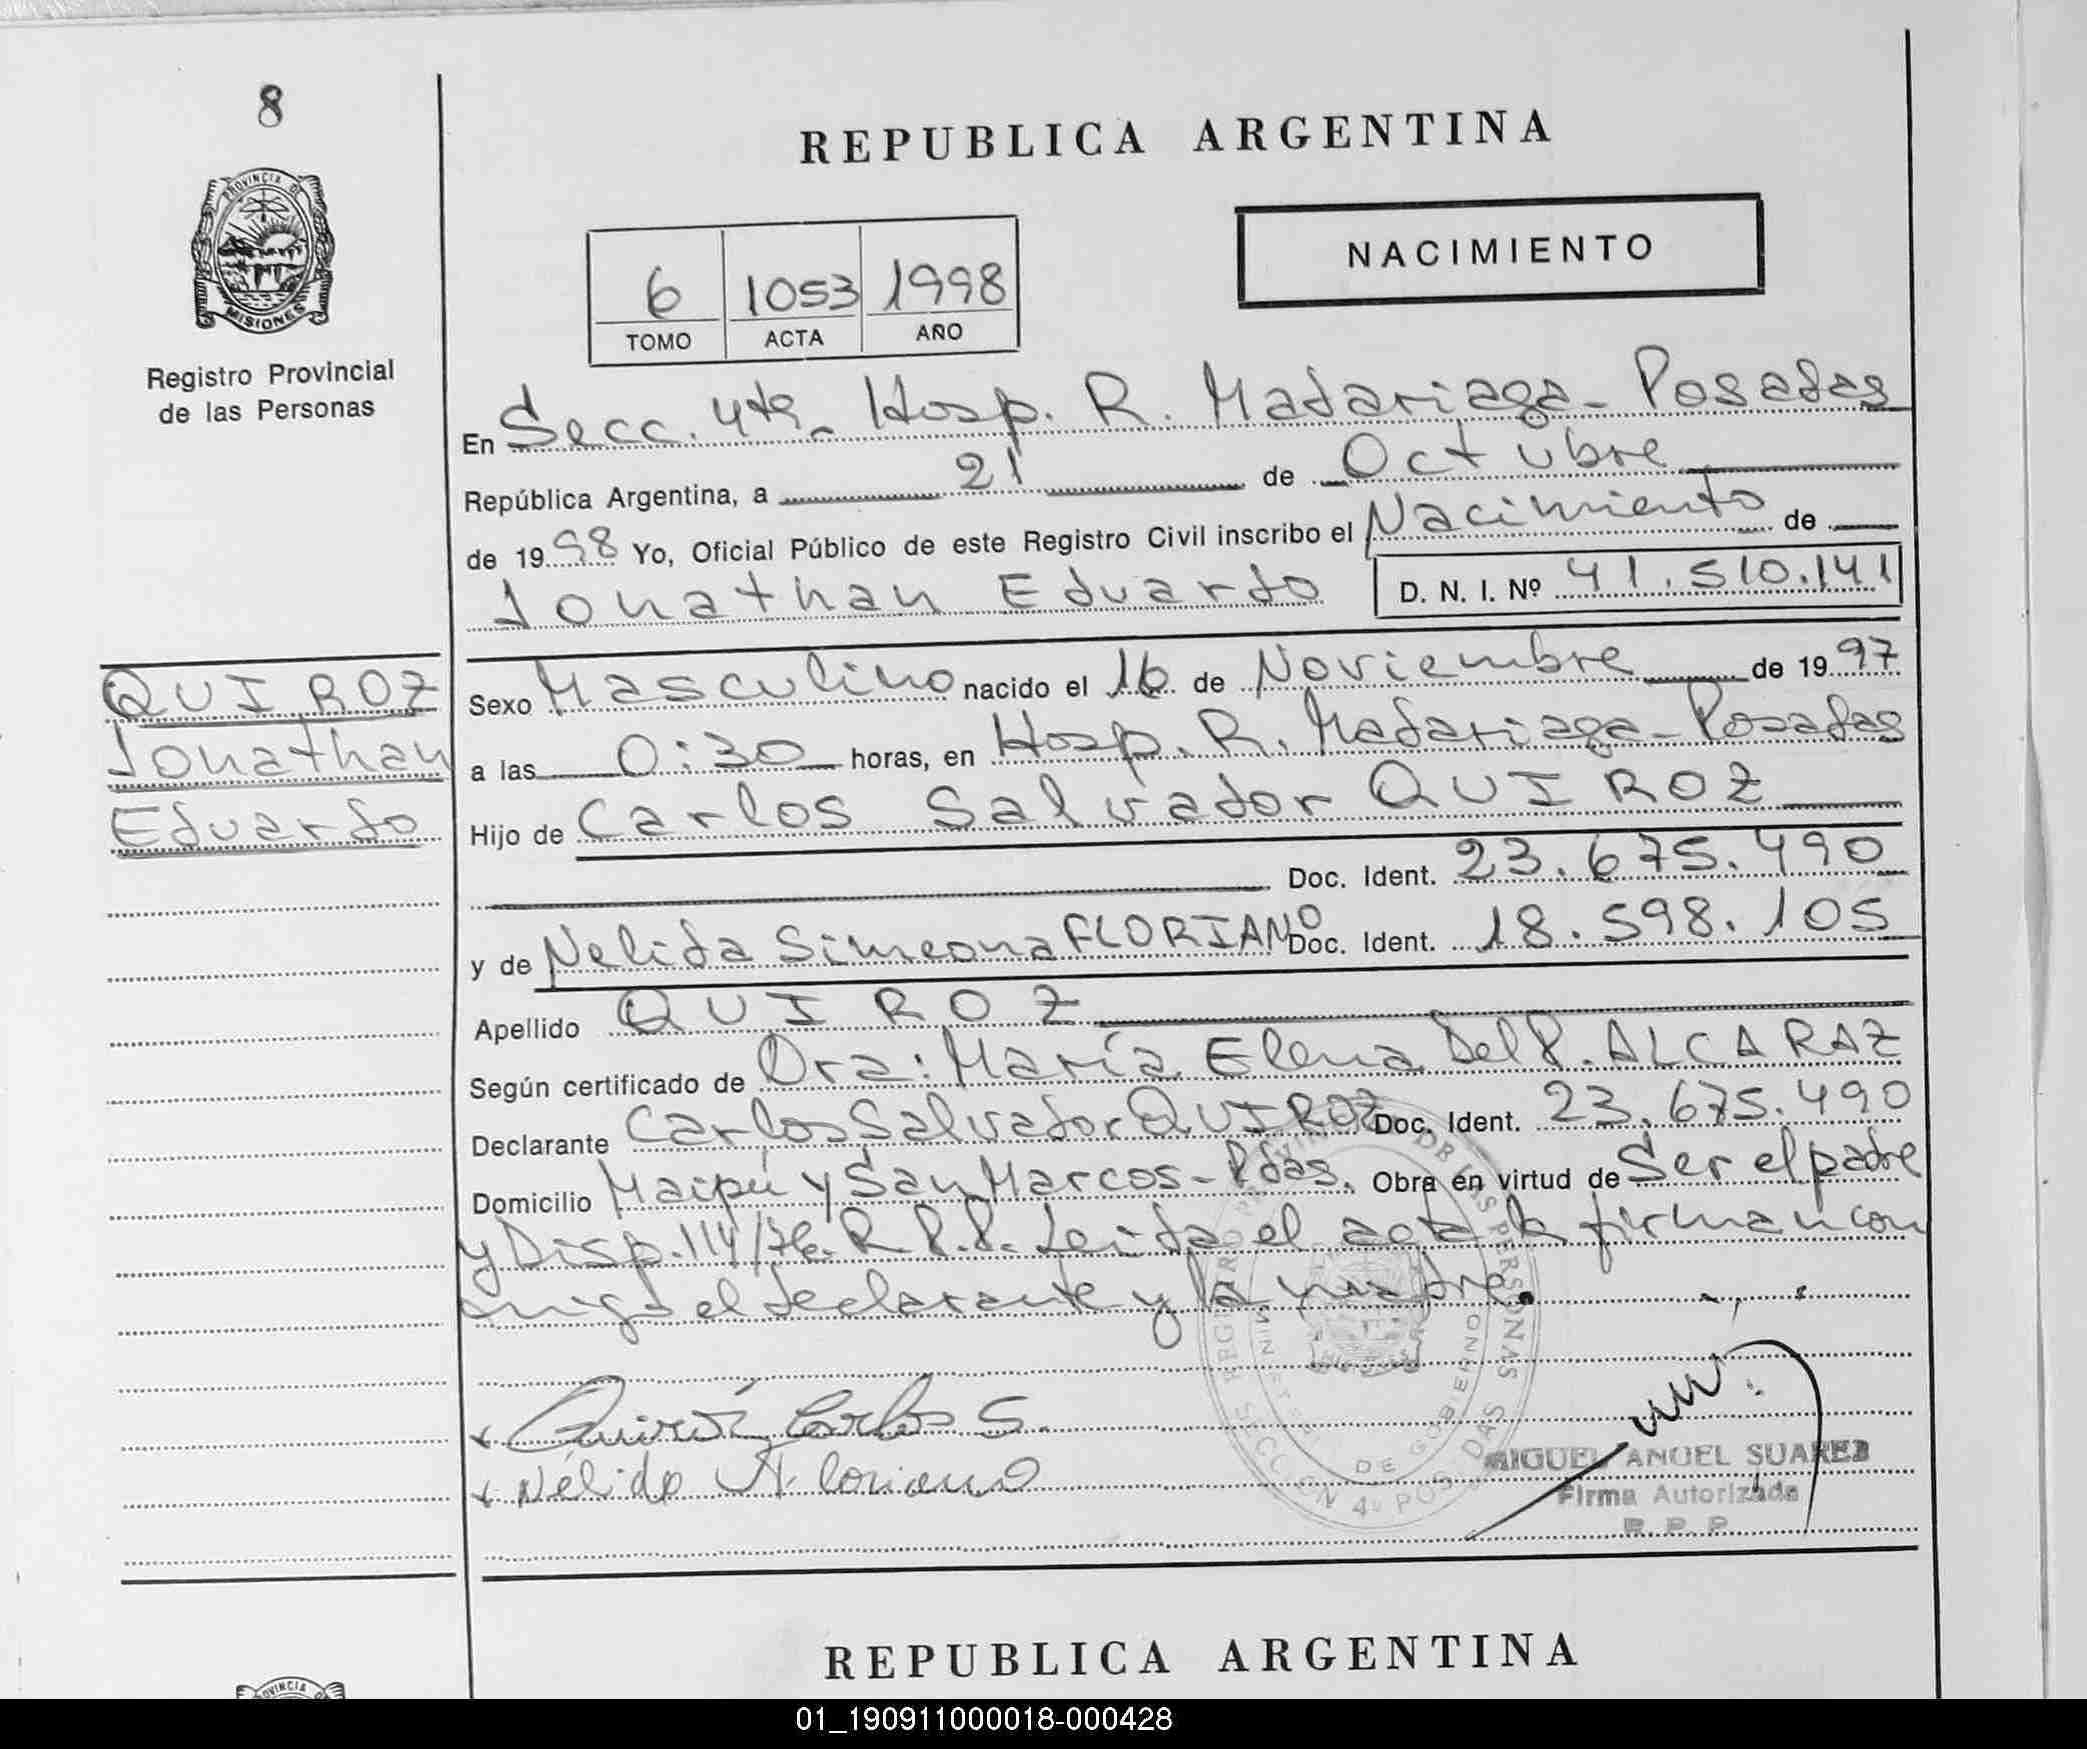 8
PROVINCIA DE
MISIONES
Registro Provincial
de las Personas
REPUBLICA ARGENTINA
NACIMIENTO
6 1053 1998
TOMO ACTA AÑO
En Secc. 4ta. Hosp. R. Madariaga - Posadas
República Argentina, a 21 de Octubre
de 1998 Yo, Oficial Público de este Registro Civil inscribo el Nacimiento de
Jonathan Eduardo D. N. I. Nº 41.510.141
QUIROZ
Jonathan
Eduardo
Sexo Masculino nacido el 16 de Noviembre de 1997
a las 0:30 horas, en Hosp. R. Madariaga - Posadas
Hijo de Carlos Salvador QUIROZ
Doc. Ident. 23.675.490
y de Nelida Simeona FLORIANO Doc. Ident. 18.598.105
Apellido QUIROZ
Según certificado de Dra: María Elena Del P. ALCARAZ
Declarante Carlos Salvador QUIROZ Doc. Ident. 23.675.490
Domicilio Maipú y San Marcos - Pdas. Obra en virtud de Ser el padre
y Disp. 114/76. R.P.P. Leida el acta la firman con
migo el declarante y la madre.
Quiróz Carlos S.
Nélida Floriano
SECCION 4ª POSADAS
DE GOBIERNO
MIGUEL ANGEL SUAREZ
Firma Autorizada
R. P. P.
REPUBLICA ARGENTINA
PROVINCIA
01_190911000018-000428